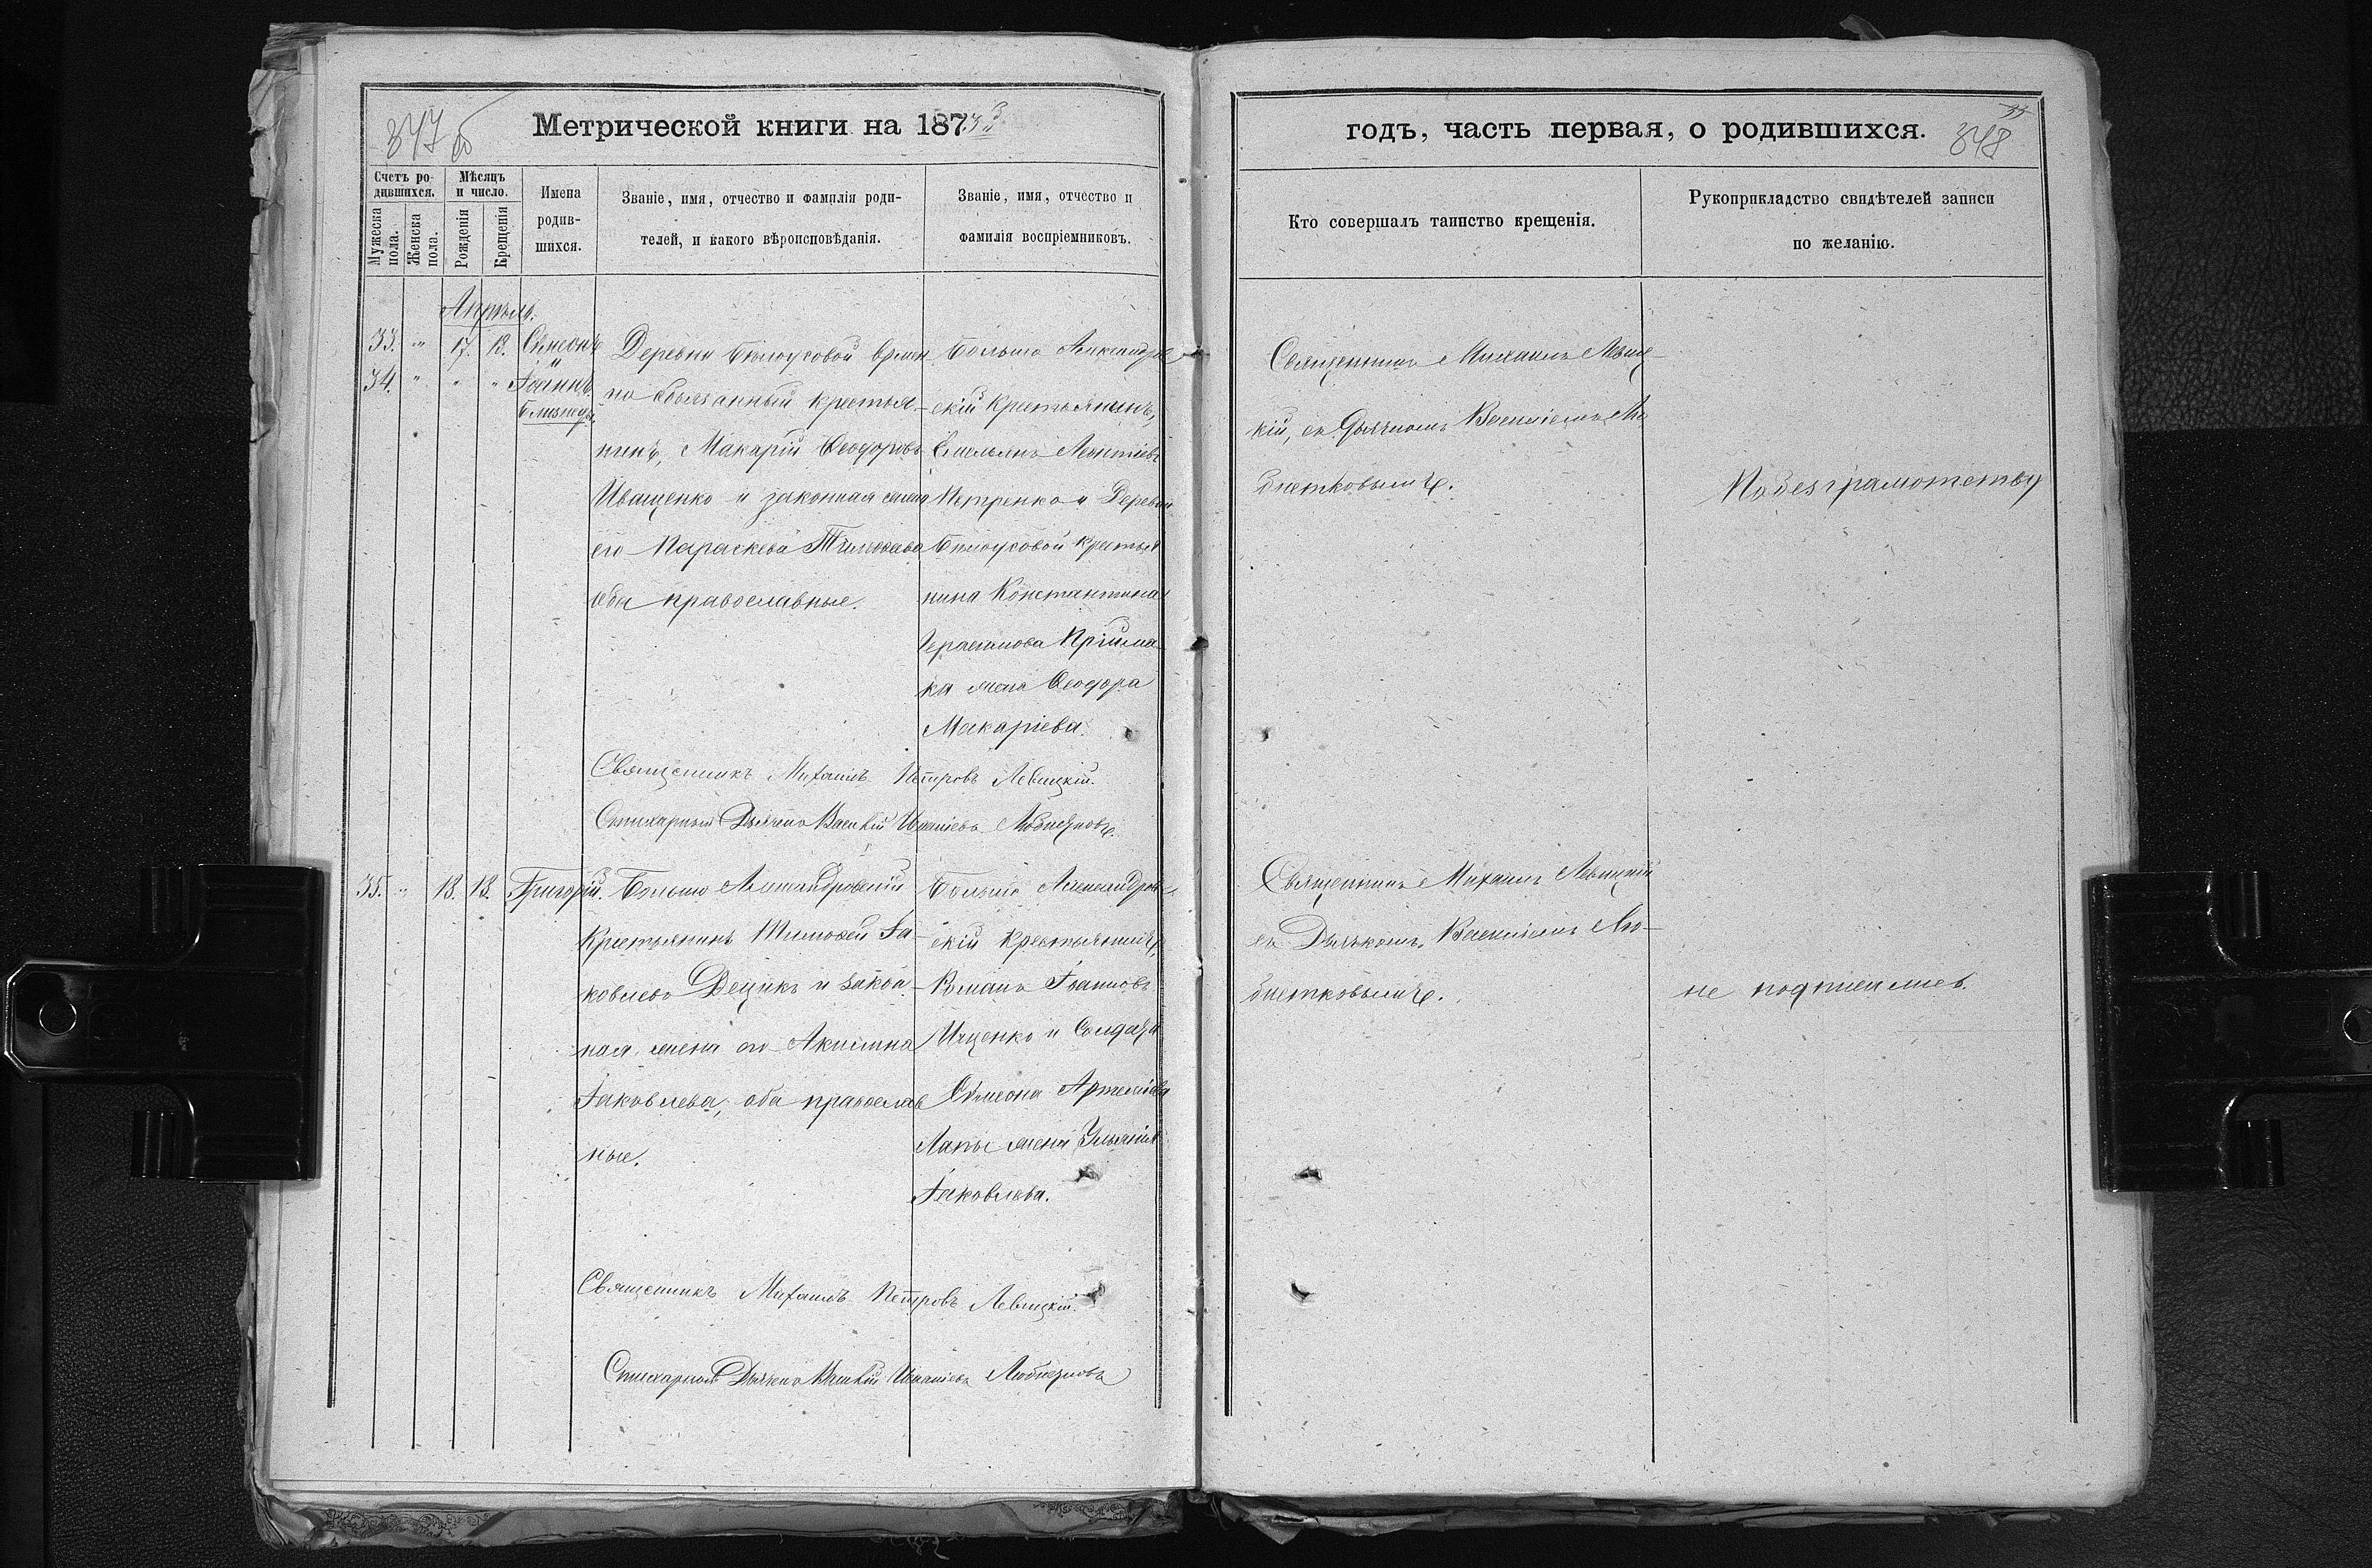 347 об
Метрической книги на 1873
Счетъ ро-
дившихся.
Мужеска
пола.
Женска
пола.
Мѣсяцъ
и число.
Рожденія
Крещенія
Имена
родив-
шихся.
Званіе, имя, отчество и фамилія роди-
телей, и какого вѣроисповѣданія.
Званіе, имя, отчество и
фамилія воспріемниковъ.
Апрѣль.
33. " 17. 18. Симеонъ
и
34. " " " Іоаннъ
близнецы.
Деревни Бѣлоусовой времен
но обязанный крестья-
нинъ, Макарій Ѳеодоровъ
Иващенко и законная жена
его Параскева Тимоѳеева
оба православные.
Больше Александров
скій крестьянинъ,
Емельянъ Леонтіевъ
Петренко и Деревни
Бѣлоусовой крестья
нина Константина
Герасимова Прійма-
ка жена Ѳеодора
Макаріева.
Священникъ Михаилъ Петровъ Левицкій.
Стихарный Дьячекъ Василій Любицковъ.
35. " 18. 18. Григорій.
Больше Александровскій
крестьянинъ Тимоѳей Іа-
ковлевъ Децикъ и закон-
ная жена его Акилина
Іаковлева, оба православ
ные.
Больше Александров-
скій крестьянинъ,
Романъ Іоанновъ
Ищенко и Солдата
Симеона Артеміева
Лапы жена Ульянія
Іаковлева.
Священникъ Михаилъ Петровъ Левицкій.
Стихарный Дьячекъ Василій Любицковъ
годъ, часть первая, о родившихся.
348
Кто совершалъ таинство крещенія.
Рукоприкладство свидѣтелей записи
по желанію.
Священникъ Михаилъ Левиц-
кій, съ Дьячкомъ Василіемъ
По безграмотству
Священникъ Михаилъ Левицкій
съ Дьячкомъ Василіемъ
не подписались.